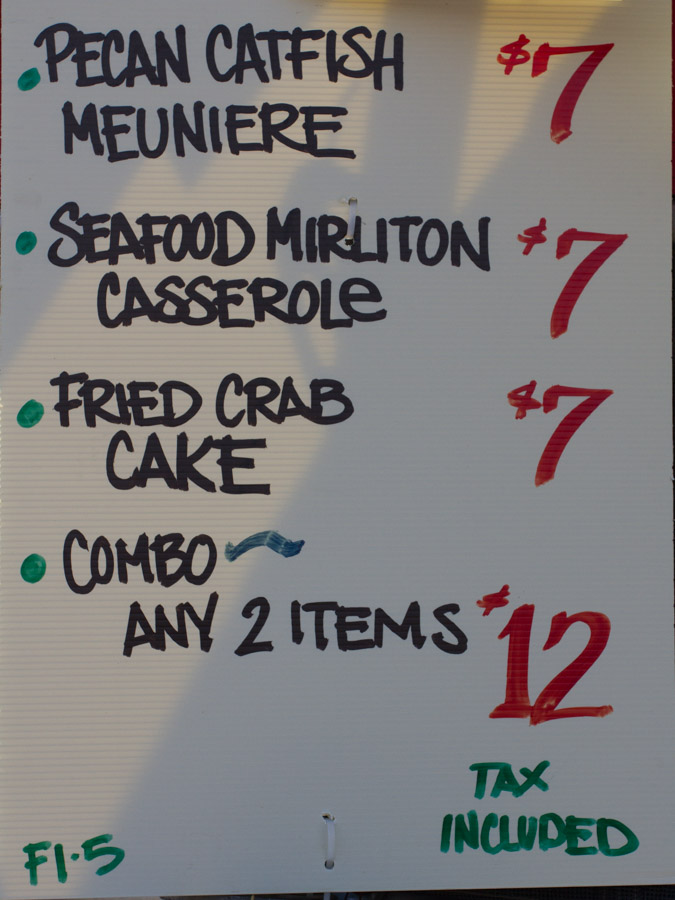 PECAN CATFISH $7
MEUNIERE
SEAFOOD MIRLITON $7
CASSEROLe
FRIED CRAB $7
CAKE
COMBO ~
ANY 2 ITEMS $12
TAX
INCLUDED
F1·5